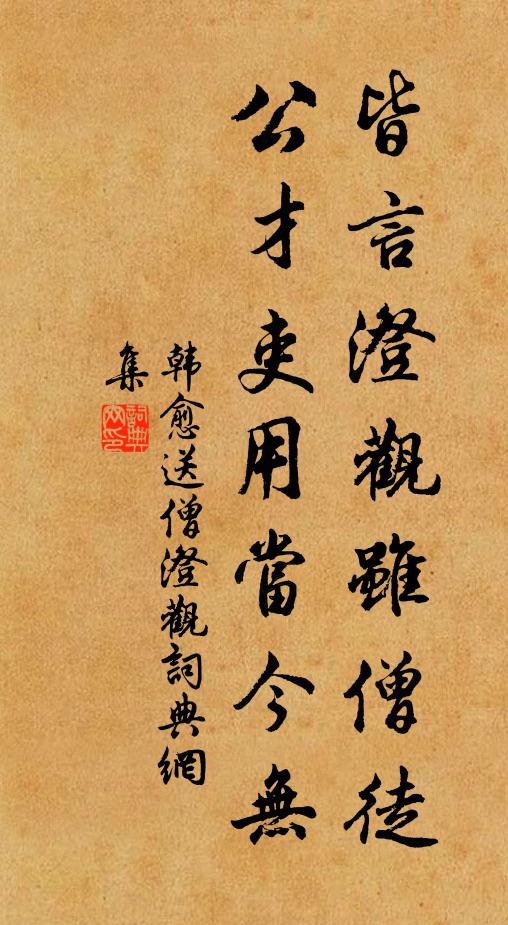 皆言澄觀雖僧徒
公才吏用當今無
韩愈送僧澄觀詞典網
集
詞典
网印